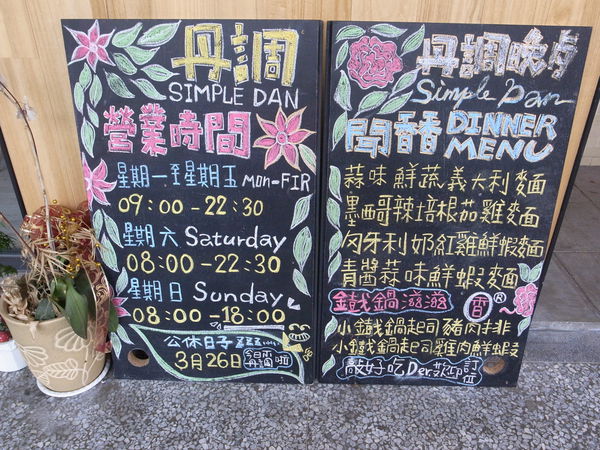 丹調
SIMPLE DAN
營業時間
星期一至星期五 mon-FIR
09:00-22:30
星期六 Saturday
08:00-22:30
星期日 Sunday
08:00-18:00
公休日子 zzz
3月26日 丹調 啦
丹調晚卢
Simple Dan
聞香 DINNER
MENU
蒜味鮮蔬義大利麵
墨哥辣培根茄雞麵
匈牙利奶紅雞鮮蝦麵
青醬蒜味鮮蝦麵
鐵鍋滋滋 香 ®
小鐵鍋起司豬肉排
小鐵鍋起司雞肉鮮蝦
敲好吃 Der. 歡迎訂